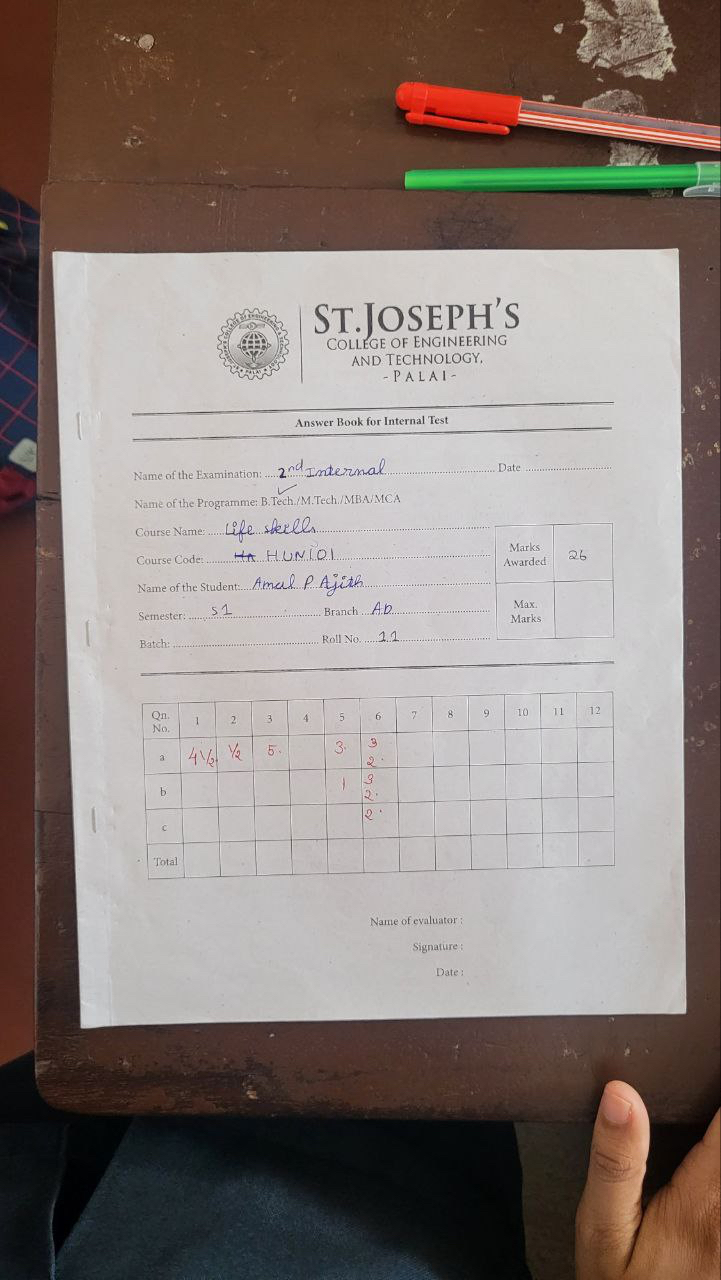 ST.JOSEPH'S
COLLEGE OF ENGINEERING
AND TECHNOLOGY,
- PALAI -
Answer Book for Internal Test
Name of the Examination: 2nd Internal Date
Name of the Programme: B.Tech./M.Tech./MBA/MCA
Course Name: Life skills
Course Code: HUN101
Marks Awarded 26
Name of the Student: Amal P Ajith
Semester: S1 Branch AD
Max. Marks
Batch: Roll No. 11
Qn. No. 1 2 3 4 5 6 7 8 9 10 11 12
a 4 1/2 1/2 5 3 3 2
b 1 3 2
c 2
Total
Name of evaluator :
Signature :
Date :